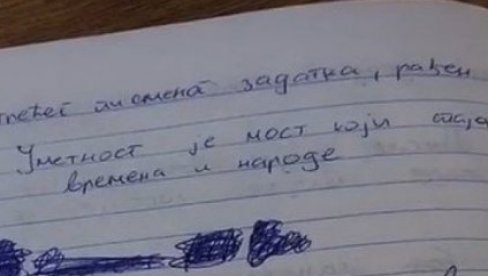 трећег писменог задатка, рађен
Уметност је мост који спаја
времена и народе